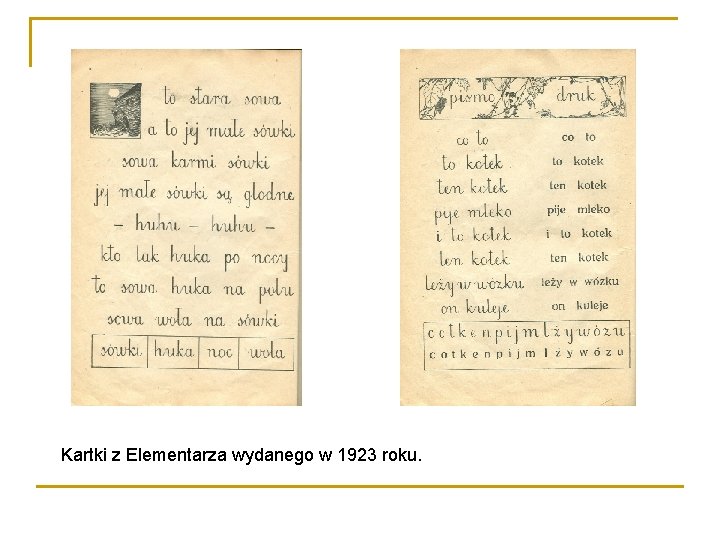 to stara sowa
a to jej małe sówki
sowa karmi sówki
jej małe sówki są głodne
– huhu – huhu –
kto tak huka po nocy
to sowa huka na polu
sowa woła na sówki
sówki huka noc woła
pismo druk
co to co to
to kotek to kotek
ten kotek ten kotek
pije mleko pije mleko
i to kotek i to kotek
ten kotek ten kotek
leży w wózku leży w wózku
on kuleje on kuleje
c o t k e n p i j m l ż y w ó z u
c o t k e n p i j m l ż y w ó z u
Kartki z Elementarza wydanego w 1923 roku.